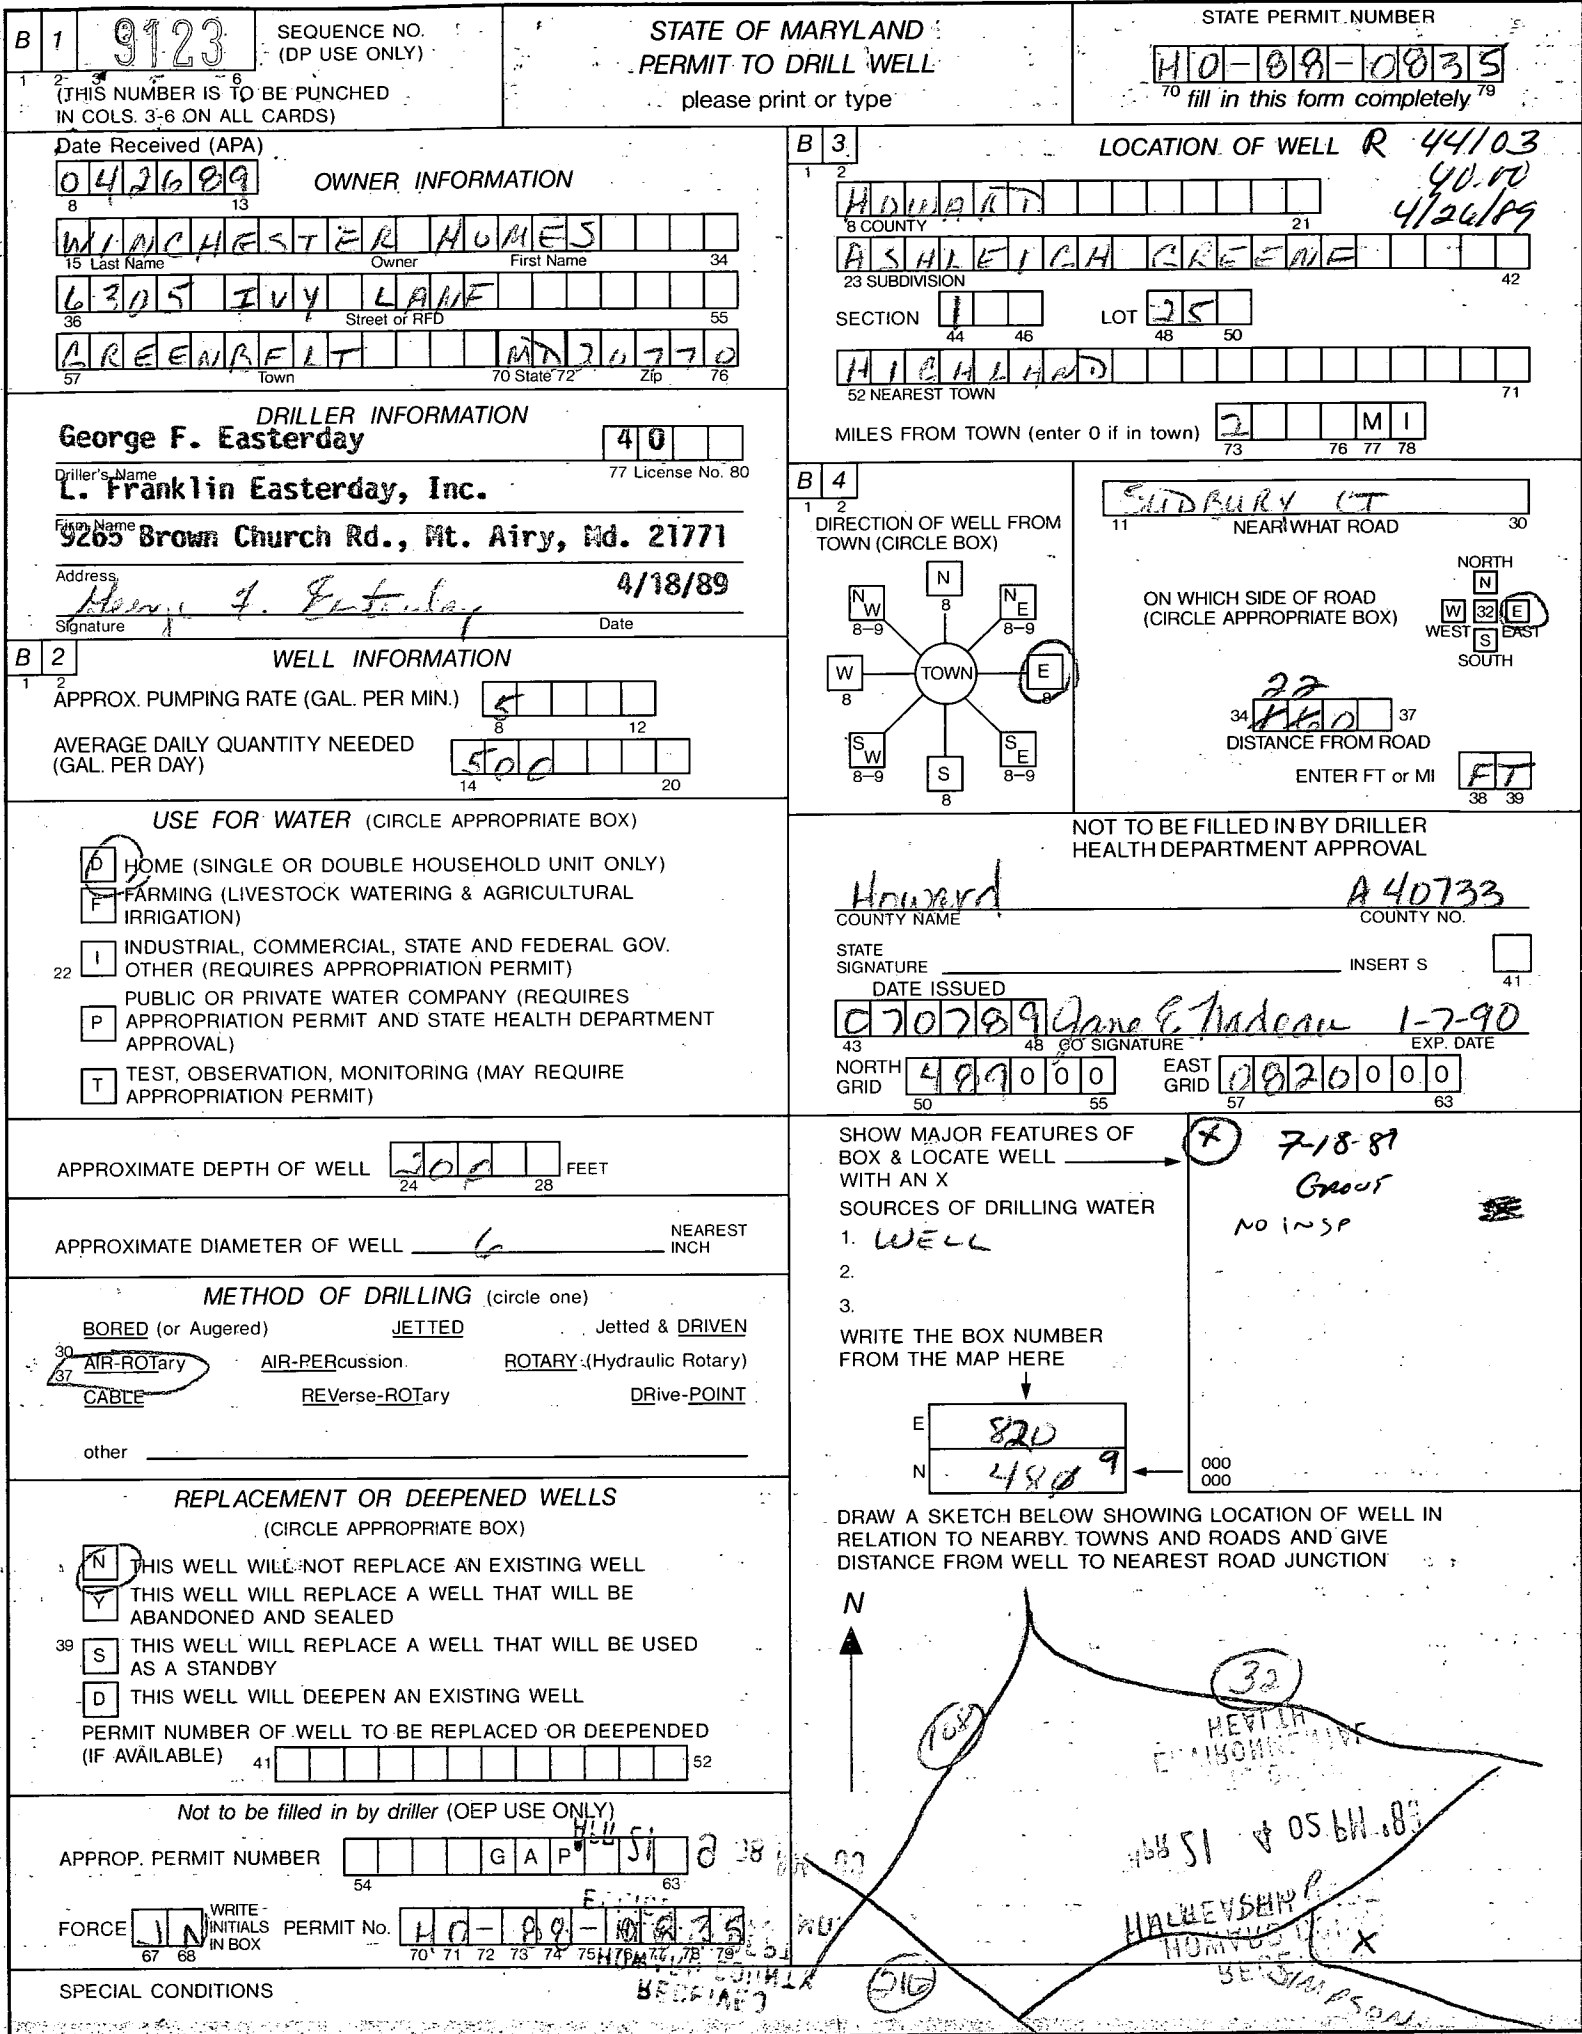 B 1 9123 SEQUENCE NO.
(DP USE ONLY)
1 2 3 6
(THIS NUMBER IS TO BE PUNCHED
IN COLS. 3-6 ON ALL CARDS)
STATE OF MARYLAND
PERMIT TO DRILL WELL
please print or type
STATE PERMIT NUMBER
HO-88-0835
70 fill in this form completely 79
Date Received (APA)
042689
8 13
OWNER INFORMATION
WINCHESTER HOMES
15 Last Name Owner First Name 34
6305 IVY LANE
36 Street or RFD 55
GREENBELT MD 20770
57 Town 70 State 72 Zip 76
DRILLER INFORMATION
George F. Easterday 40
Driller's Name 77 License No. 80
L. Franklin Easterday, Inc.
Firm Name
9265 Brown Church Rd., Mt. Airy, Md. 21771
Address
George F. Easterday 4/18/89
Signature Date
B 2 WELL INFORMATION
1 2
APPROX. PUMPING RATE (GAL. PER MIN.) 5
8 12
AVERAGE DAILY QUANTITY NEEDED
(GAL. PER DAY) 500
14 20
USE FOR WATER (CIRCLE APPROPRIATE BOX)
D HOME (SINGLE OR DOUBLE HOUSEHOLD UNIT ONLY)
F FARMING (LIVESTOCK WATERING & AGRICULTURAL
IRRIGATION)
22 I INDUSTRIAL, COMMERCIAL, STATE AND FEDERAL GOV.
OTHER (REQUIRES APPROPRIATION PERMIT)
P PUBLIC OR PRIVATE WATER COMPANY (REQUIRES
APPROPRIATION PERMIT AND STATE HEALTH DEPARTMENT
APPROVAL)
T TEST, OBSERVATION, MONITORING (MAY REQUIRE
APPROPRIATION PERMIT)
APPROXIMATE DEPTH OF WELL 200 FEET
24 28
APPROXIMATE DIAMETER OF WELL 6 NEAREST
INCH
METHOD OF DRILLING (circle one)
BORED (or Augered) JETTED Jetted & DRIVEN
30
37 AIR-ROTary AIR-PERcussion ROTARY (Hydraulic Rotary)
CABLE REVerse-ROTary DRive-POINT
other
REPLACEMENT OR DEEPENED WELLS
(CIRCLE APPROPRIATE BOX)
N THIS WELL WILL NOT REPLACE AN EXISTING WELL
Y THIS WELL WILL REPLACE A WELL THAT WILL BE
ABANDONED AND SEALED
39 S THIS WELL WILL REPLACE A WELL THAT WILL BE USED
AS A STANDBY
D THIS WELL WILL DEEPEN AN EXISTING WELL
PERMIT NUMBER OF WELL TO BE REPLACED OR DEEPENDED
(IF AVAILABLE) 41 52
Not to be filled in by driller (OEP USE ONLY)
APPROP. PERMIT NUMBER GAP
54 63
FORCE JN WRITE INITIALS IN BOX PERMIT No. HO-88-0835
67 68 70 71 72 73 74 75 76 77 78 79
SPECIAL CONDITIONS
B 3 LOCATION OF WELL R 44103
1 2
40.00
4/26/89
HOWARD
8 COUNTY 21
ASHLEIGH GREENE
23 SUBDIVISION 42
SECTION 1 LOT 25
44 46 48 50
HIGHLAND
52 NEAREST TOWN 71
MILES FROM TOWN (enter 0 if in town) 2 MI
73 76 77 78
B 4
1 2
DIRECTION OF WELL FROM
TOWN (CIRCLE BOX)
N
8
NW
8-9
NE
8-9
W
8
TOWN
E
8
SW
8-9
S
8
SE
8-9
SUDBURY CT
11 NEAR WHAT ROAD 30
ON WHICH SIDE OF ROAD
(CIRCLE APPROPRIATE BOX)
NORTH
N
W 32 E
WEST EAST
S
SOUTH
22
34 0 37
DISTANCE FROM ROAD
ENTER FT or MI FT
38 39
NOT TO BE FILLED IN BY DRILLER
HEALTH DEPARTMENT APPROVAL
Howard A 40733
COUNTY NAME COUNTY NO.
STATE
SIGNATURE INSERT S
41
DATE ISSUED
070789 Jane E Nadeau 1-7-90
43 48 CO SIGNATURE EXP. DATE
NORTH GRID 489000 EAST GRID 0820000
50 55 57 63
SHOW MAJOR FEATURES OF
BOX & LOCATE WELL
WITH AN X
X 7-18-89
GROUT
NO INSP
SOURCES OF DRILLING WATER
1. WELL
2.
3.
WRITE THE BOX NUMBER
FROM THE MAP HERE
E 820
N 480 9
000
000
DRAW A SKETCH BELOW SHOWING LOCATION OF WELL IN
RELATION TO NEARBY TOWNS AND ROADS AND GIVE
DISTANCE FROM WELL TO NEAREST ROAD JUNCTION
N
32
108
HEALTH
APR 21 4 02 PM '89
X
216
SIMPSON
RECEIVED
HOWARD COUNTY